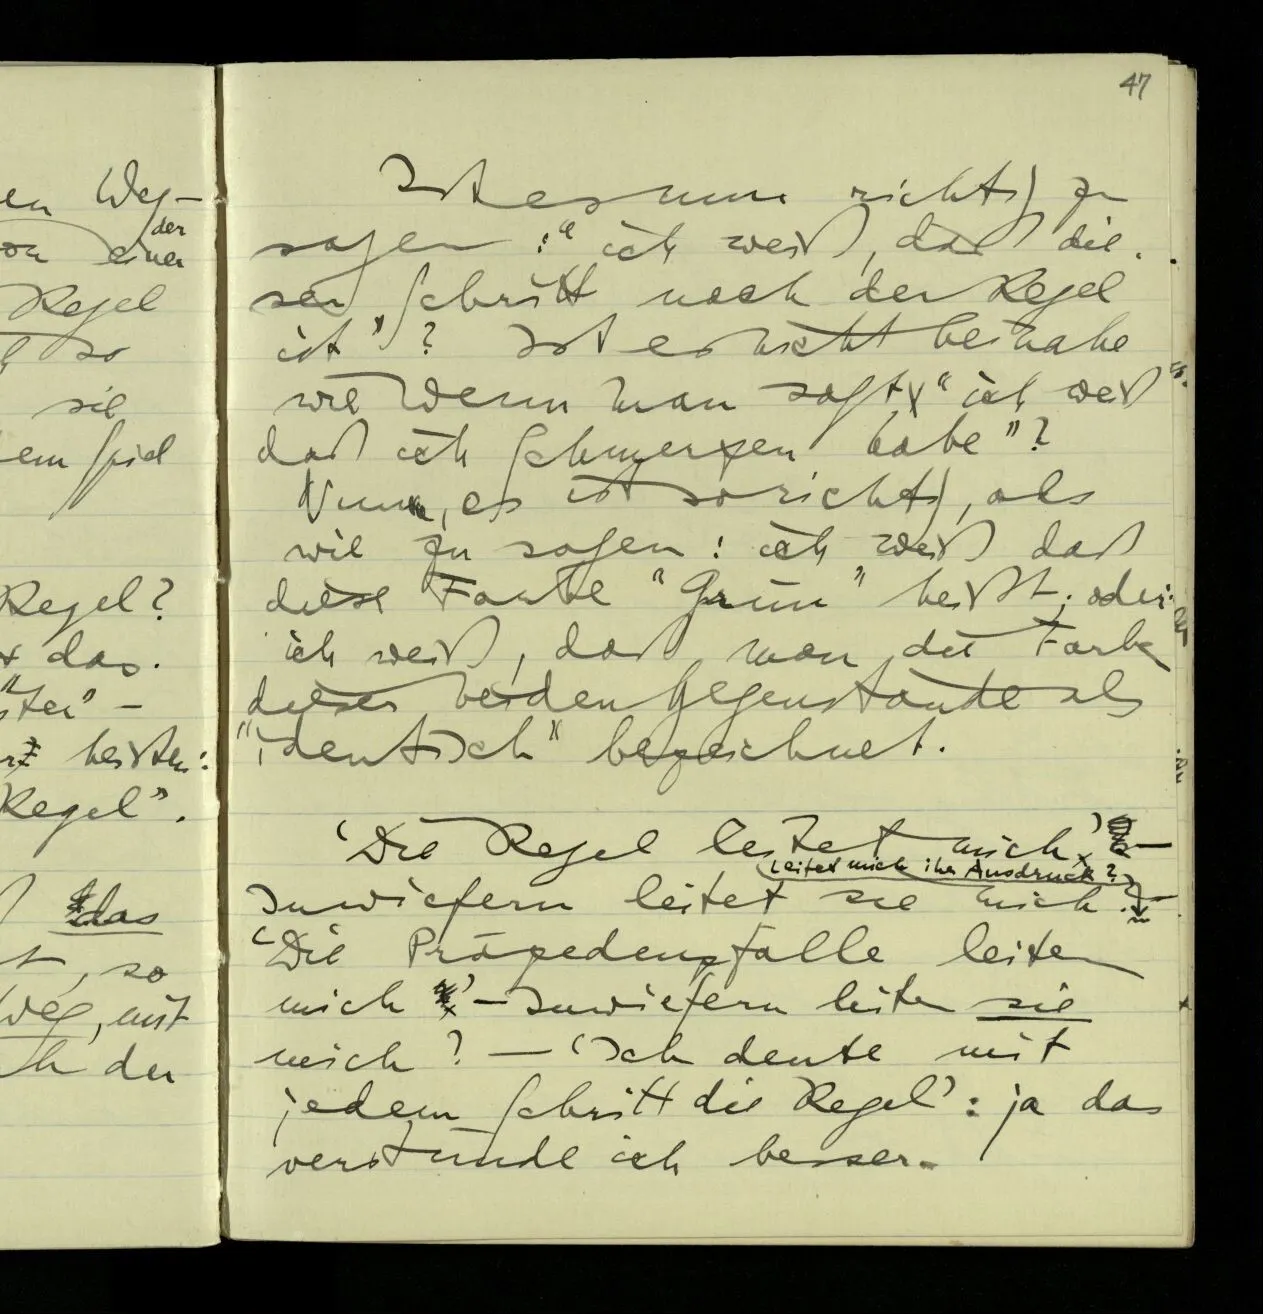 en Weg-
der
von einer
Regel
so
sie
dem Spiel
Regel?
das.
heißen:
Regel".
das
, so
Weg, mit
der
47
Ist es nun richtig zu
sagen: "ich weiß, daß die-
ser Schritt nach der Regel
ist"? Ist es nicht beinahe
wie wenn man sagt "ich weiß
daß ich Schmerzen habe"?
Nun, es ist so richtig, als
wie zu sagen: ich weiß daß
diese Farbe "Grün" heißt; oder:
ich weiß, daß man die Farbe
dieser beiden Gegenstände als
"identisch" bezeichnet.
'Die Regel leitet mich' –
Leitet mich ihr Ausdruck?
Inwiefern leitet sie mich?
'Die Präzedenzfälle leiten
mich' – Inwiefern leiten sie
mich? – 'Ich deute mit
jedem Schritt die Regel': ja das
verstünde ich besser.